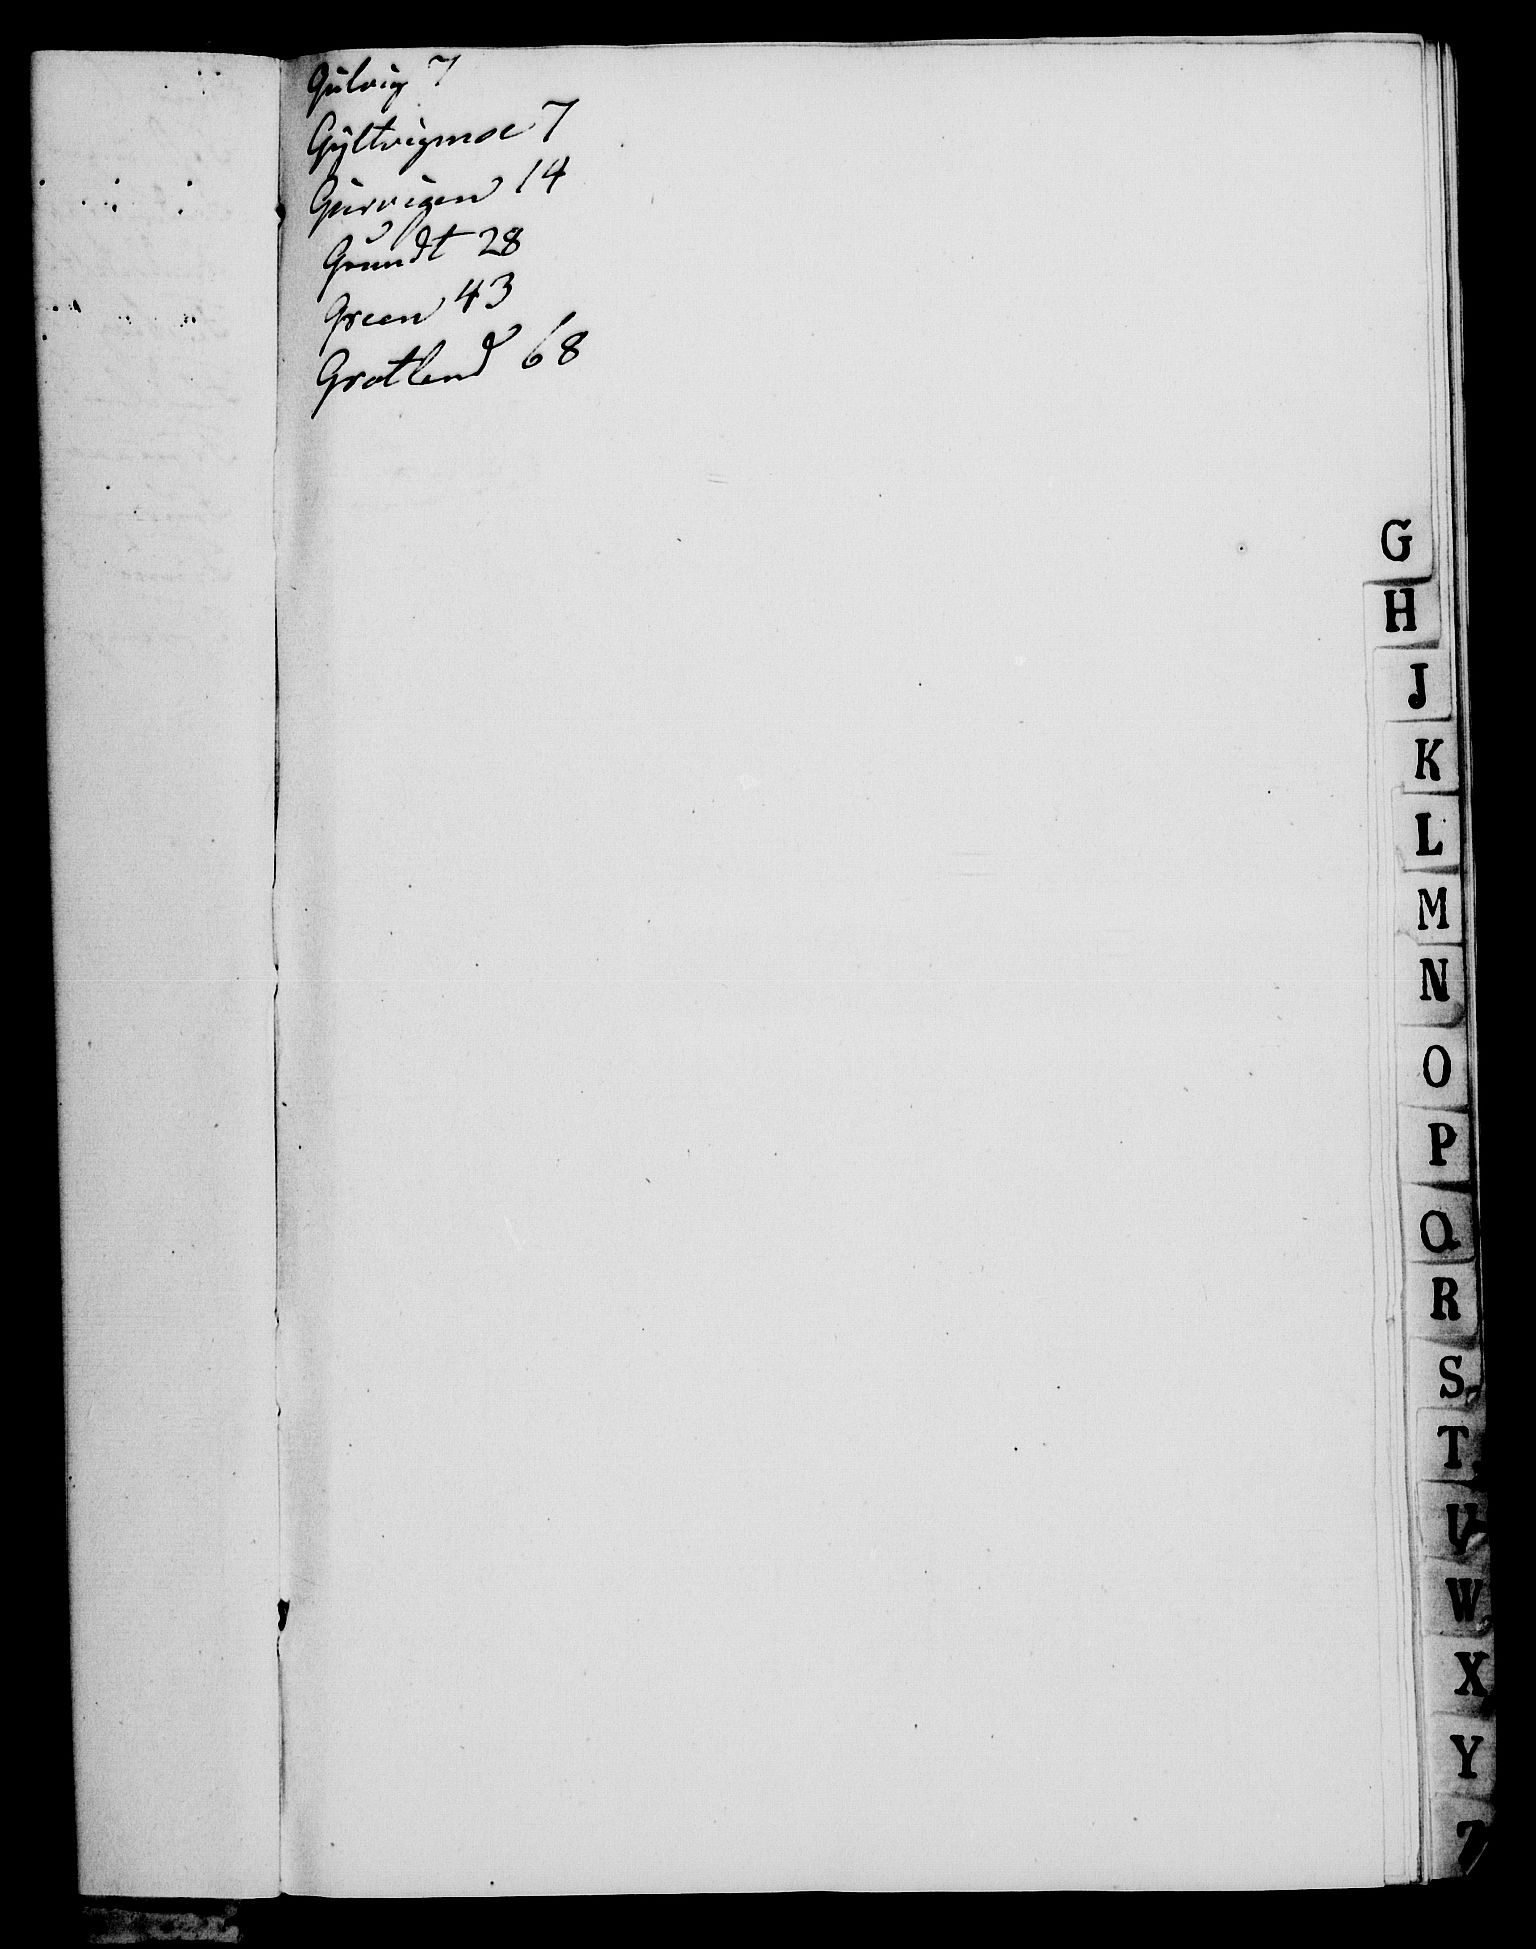 Gulvig 7
Gyltvigmoe 7
Gurvigen 14
Grundt 28
Green 43
Grotlend 68
G
H
J
K
L
M
N
O
P
Q
R
S
T
U
W
X
Y
Z